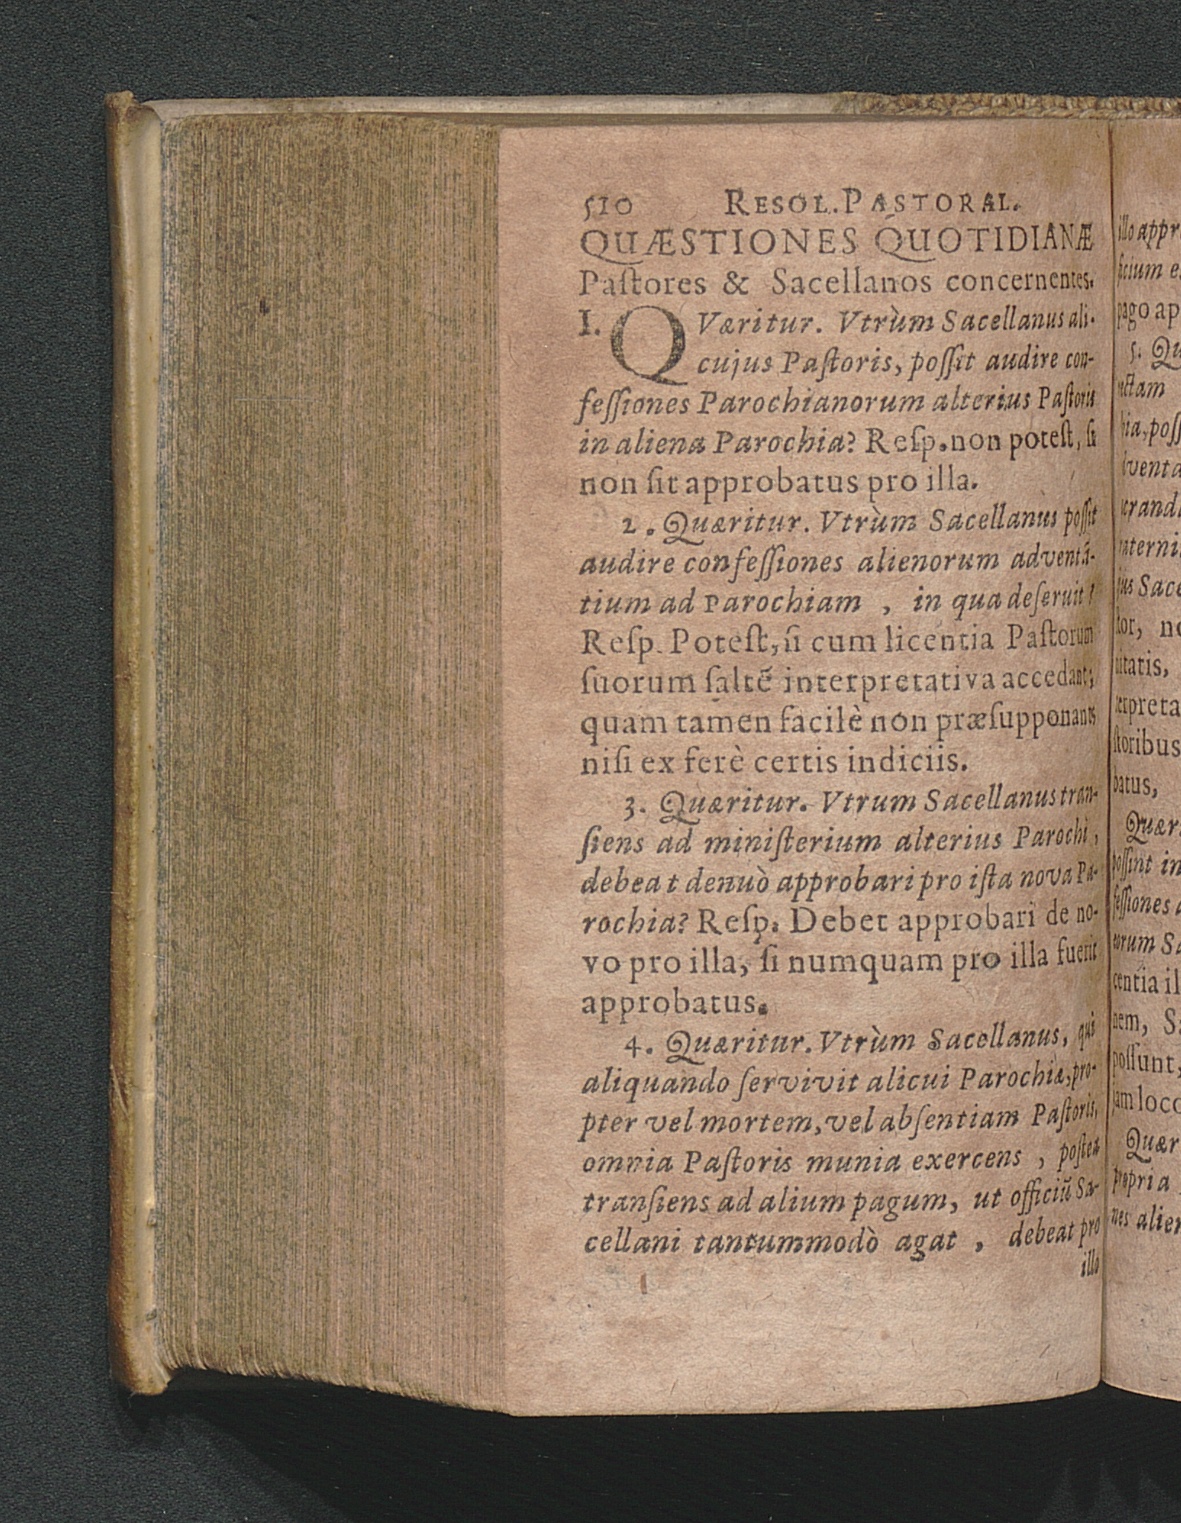 510 RESOL. PASTORAL.
QUÆSTIONES QUOTIDIANÆ
Paſtores & Sacellanos concernentes.
I. QVæritur. Vtrùm Sacellanus ali-
cujus Paſtoris, poſſit audire con-
feſſiones Parochianorum alterius Paſtoris
in aliena Parochia? Reſp. non poteſt, ſi
non ſit approbatus pro illa.
2. Quæritur. Vtrùm Sacellanus poſſit
audire confeſſiones alienorum adventã-
tium ad Parochiam, in qua deſeruit?
Reſp. Poteſt, ſi cum licentia Paſtorum
ſuorum ſaltẽ interpretativa accedant;
quam tamen facilè non præſupponant
niſi ex ferè certis indiciis.
3. Quæritur. Vtrum Sacellanus tran-
ſiens ad miniſterium alterius Parochi,
debeat denuò approbari pro iſta nova Pa-
rochia? Reſp. Debet approbari de no-
vo pro illa, ſi numquam pro illa fuerit
approbatus.
4. Quæritur. Vtrùm Sacellanus, qui
aliquando ſervivit alicui Parochiæ, pro-
pter vel mortem, vel abſentiam Paſtoris,
omnia Paſtoris munia exercens, poſtea
tranſiens ad alium pagum, ut officiũ Sa-
cellani tantummodò agat, debeat pro
illo
illo
pago
5.
Sace
non
batus,
in
poſſunt,